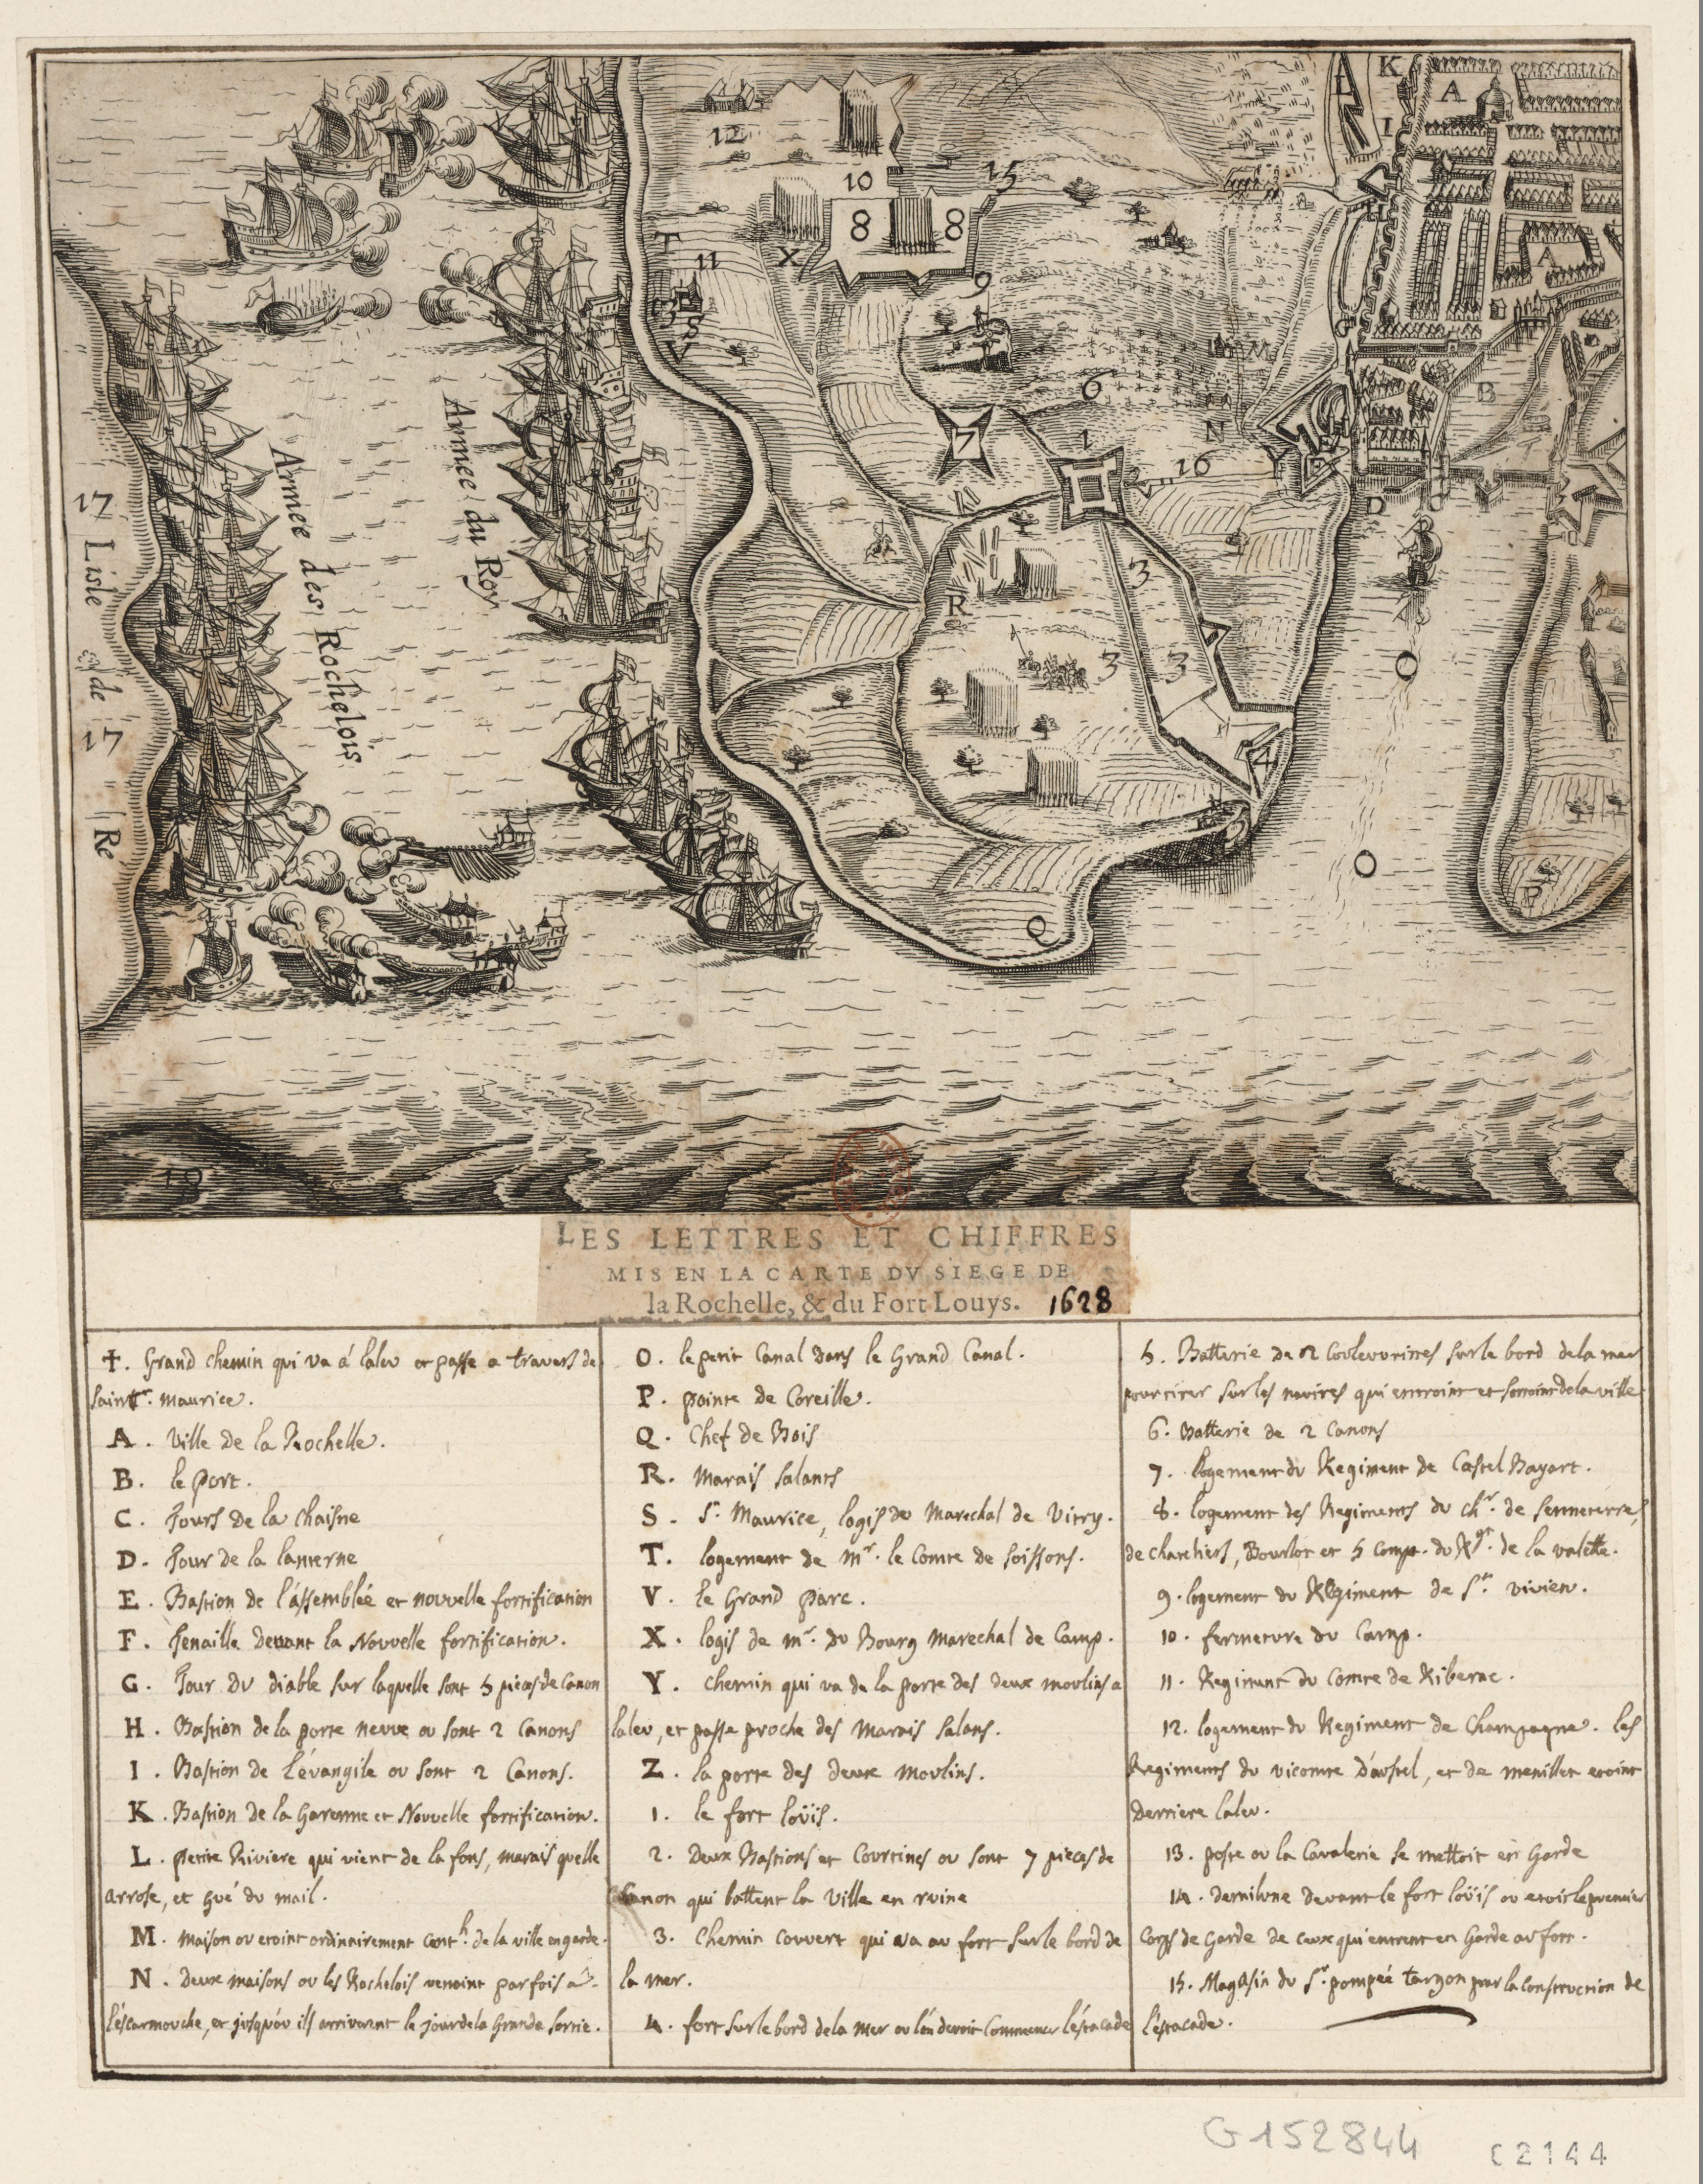 K
A
L
I
12
10
15
8
8
H
A
T
11
X
9
S
V
G
M
6
B
N
7
1
2
16
Z
E
D
C
11
Armée du Roy
Armée des Rochelois
17
Lisle de Re
17
3
R
3
3
O
4
O
P
Q
19
LES LETTRES ET CHIFFRES
MIS EN LA CARTE DV SIEGE DE
la Rochelle, & du Fort Louys. 1628
☩. Grand chemin qui va á laleu et passe a travers de
Saint maurice.
A. Ville de la Rochelle.
B. le Port.
C. Tours de la chaisne
D. Tour de la lanterne
E. Bastion de l'assemblée et nouvelle fortification
F. Tenaille devant la Nouvelle fortification.
G. Tour du diable sur laquelle sont 5 pieces de Canon
H. Bastion de la porte neuve ou sont 2 Canons
I. Bastion de L'évangile ou sont 2 Canons.
K. Bastion de la Garenne et Nouvelle fortification.
L. petite Riviere qui vient de la fons, marais quelle
arrose, et gué du mail.
M. maison ou etoint ordinairement cent h. de la ville en garde.
N. Deux maisons ou les Rochelois venoint parfois a
l'éscarmouche, et jusqu'óu ils arriverent le jour de la Grande Sortie.
O. le petit Canal dans le Grand Canal.
P. pointe de Coreille.
Q. Chef de Bois
R. Marais Salants
S. St. Maurice, logis du Marechal de Vitry.
T. logement de mr. le Comte de Soissons.
V. le Grand parc.
X. logis de mr. du Bourg Marechal de Camp.
Y. chemin qui va de la porte des deux moulins a
laleu, et passe proche des Marais Salans.
Z. la porte des deux Moulins.
1. le fort loüis.
2. Deux Bastions et Courtines ou sont 7 pieces de
Canon qui battent la Ville en ruine
3. Chemin couvert qui va au fort sur le bord de
la mer.
4. fort sur le bord de la mer ou l'ón devoit Commencer l'éstacade
5. Batterie de 2 Coulevurines sur le bord de la mer
pour tirer sur les navires qui entroint et sortoint de la ville
6. Batterie de 2 Canons
7. logement du Regiment de Castel Bayart.
8. logement des Regiments du chr. de Senneterre,
de chateliers, Bourlot et 5 comp. du Rgt. de la valette.
9. logement du Regiment de St. vivien.
10. fermeture du Camp.
11. Regiment du Comte de Riberac.
12. logement du Regiment de Champagne. les
Regiments du vicomte d'áustel, et de menillet etoint
Derriere laleu.
13. poste ou la Cavalerie se mettoit en Garde
14. demilune devant le fort loüis ou etoit le premier
Corps de Garde de ceux qui entrent en Garde au fort.
15. Magasin du Sr. pompée targon pour la construction de
l'éstacade.
G152844
C 2144